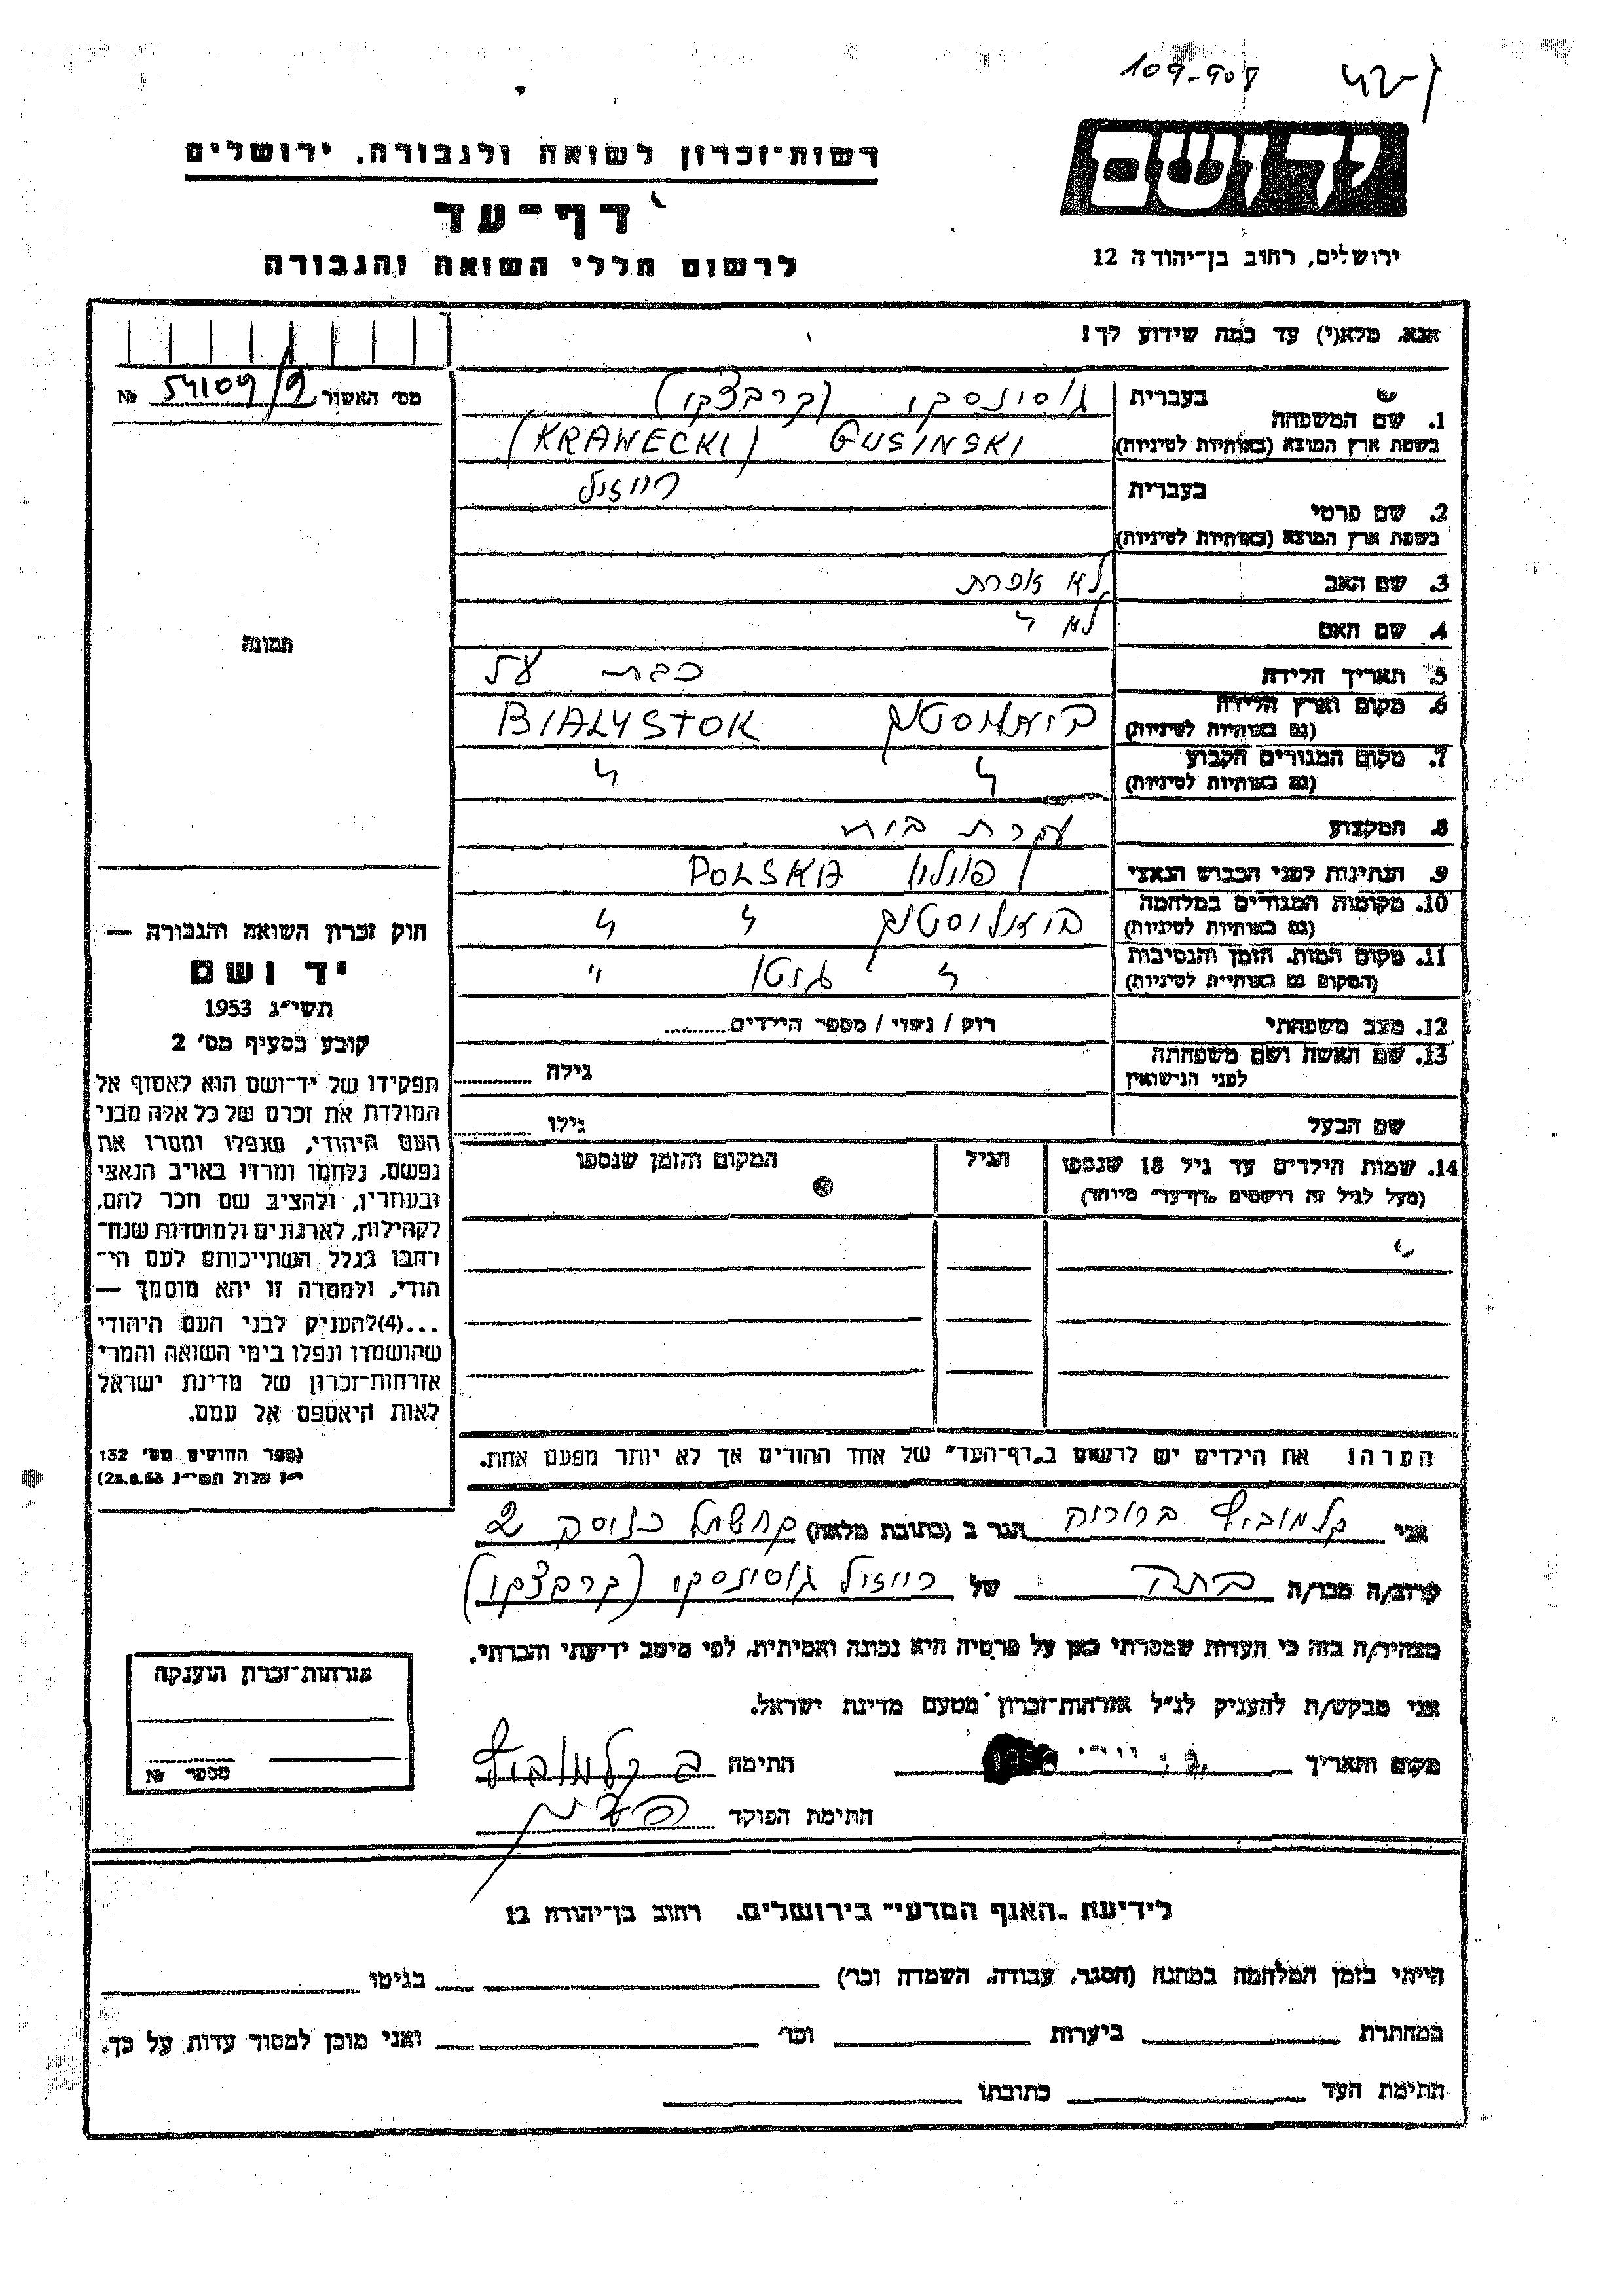 109-908
יד ושם
ירושלים, רחוב בן־יהודה 12
רשות־זכרון לשואה ולגבורה, ירושלים
דף־עד
לרשום חללי השואה והגבורה
אנא, מלא(י) עד כמה שידוע לך!
מס׳ האשור 54109/9 №
1. שם המשפחה
בעברית גוסינסקי (קרבצקי)
בשפת ארץ המוצא (באותיות לטיניות) GUSINSKI (KRAWECKI)
2. שם פרטי
בעברית רייזל
בשפת ארץ המוצא (באותיות לטיניות)
3. שם האב לא
4. שם האם לא
5. תאריך הלידה כבת
6. מקום וארץ הלידה
(גם באותיות לטיניות) ביאליסטוק BIALYSTOK
7. מקום המגורים הקבוע
(גם באותיות לטיניות) " "
8. המקצוע עקרת בית
9. הנתינות לפני הכבוש הנאצי פולין POLSKA
10. מקומות המגורים במלחמה
(גם באותיות לטיניות) ביאליסטוק " "
11. מקום המות, הזמן והנסיבות
(המקום גם באותיות לטיניות) " גטו "
12. מצב משפחתי רווק / נשוי / מספר הילדים
13. שם האשה ושם משפחתה
לפני הנישואין גילה
שם הבעל גילו
14. שמות הילדים עד גיל 18 שנספו הגיל המקום והזמן שנספו
(מעל לגיל זה רושמים „דף־עד״ מיוחד)
הערה! את הילדים יש לרשום ב„דף־העד״ של אחד ההורים אך לא יותר מפעם אחת.
תמונה
חוק זכרון השואה והגבורה —
יד ושם
תשי״ג 1953
קובע בסעיף מס׳ 2
תפקידו של יד־ושם הוא לאסוף אל
המולדת את זכרם של כל אלה מבני
העם היהודי, שנפלו ומסרו את
נפשם, נלחמו ומרדו באויב הנאצי
ובעוזריו, ולהציב שם וזכר להם,
לקהילות, לארגונים ולמוסדות שנח־
רבו בגלל השתייכותם לעם הי־
הודי, ולמטרה זו יהא מוסמך —
...(4)להעניק לבני העם היהודי
שהושמדו ונפלו בימי השואה והמרי
אזרחות־זכרון של מדינת ישראל
לאות היאספם אל עמם.
(ספר החוקים מס׳ 132
י״ז אלול תשי״ג 28.8.53)
אני קלמוביץ ברוריה הגר ב (כתובת מלאה)
קרוב/ה מכר/ה בתה של רייזל גוסינסקי (קרבצקי)
מצהיר/ה בזה כי העדות שמסרתי כאן על פרטיה היא נכונה ואמיתית, לפי מיטב ידיעתי והכרתי.
אני מבקש/ת להעניק לנ״ל אזרחות־זכרון מטעם מדינת ישראל.
מקום ותאריך חתימה ב קלמוביץ
חתימת הפוקד
אזרחות־זכרון הוענקה
מספר №
לידיעת „האגף המדעי״ בירושלים, רחוב בן־יהודה 12
הייתי בזמן המלחמה במחנה (הסגר, עבודה, השמדה וכו׳) בגיטו
במחתרת ביערות וכו׳ ואני מוכן למסור עדות על כך.
חתימת העד כתובתו